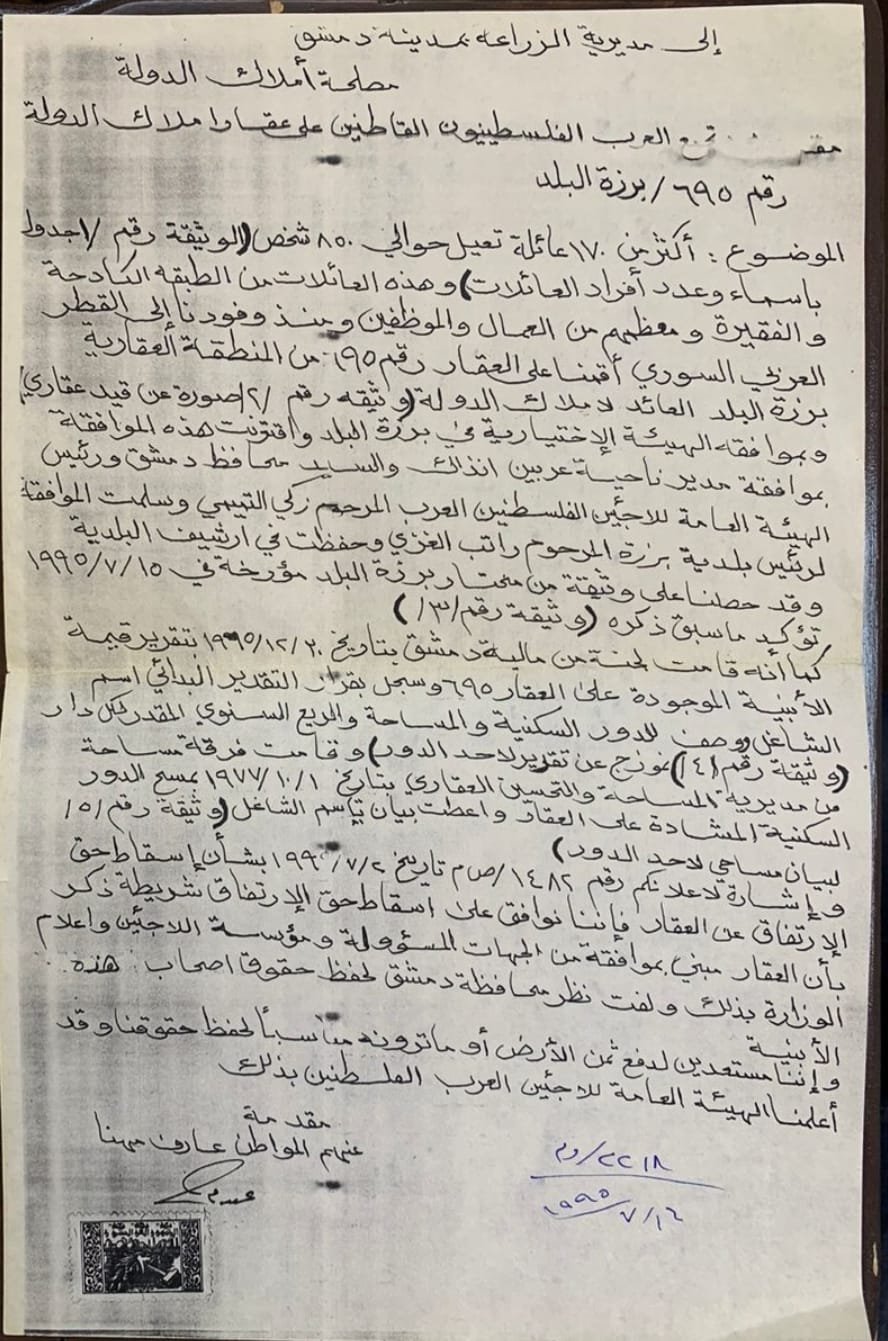 إلى مديرية الزراعه بمدينة دمشق
مصلحة أملاك الدولة
العرب الفلسطينيون القاطنين على عقار املاك الدولة
رقم ٦٩٥ / برزة البلد
الموضوع : أكثر من ١٧٠ عائلة تعيل حوالي ٨٥٠ شخص (الوثيقة رقم /١ جدول
باسماء وعدد أفراد العائلات) وهذه العائلات من الطبقه الكادحة
والفقيرة ومعظمهم من العمال والموظفين ومنذ وفودنا إلى القطر
العربي السوري أقمنا على العقار رقم ٦٩٥ من المنطقة العقارية
برزة البلد العائد لاملاك الدولة (وثيقه رقم /٢ صورة عن قيد عقاري)
وبموافقه الهيئة الإختيارية في برزة البلد واقترنت هذه الموافقة
بموافقة مدير ناحية عربين انذاك والسيد محافظ دمشق ورئيس
الهيئة العامة للاجئين الفلسطنين العرب المرحوم زكي التميمي وسلمت الموافقة
لرئيس بلدية برزة المرحوم راتب الغزي وحفظت في ارشيف البلدية
وقد حصلنا على وثيقة من مختار برزة البلد مؤرخة في ١٩٩٥/٧/١٥
تؤكد ماسبق ذكره (وثيقة رقم /٣/)
كما أنه قامت لجنة من مالية دمشق بتاريخ ١٩٩٥/١٢/٣٠ بتقرير قيمة
الأبنية الموجودة على العقار ٦٩٥ وسجل بقرار التقدير البدائي اسم
الشاغل ووصف للدور السكنية والمساحة والريع السنوي المقدر لكل دار
(وثيقة رقم /٤/ نموزج عن تقرير لاحد الدور) وقامت فرقة مساحة
من مديرية المساحة والتحسين العقاري بتاريخ ١٩٧٧/١٠/١ بمسح الدور
السكنية المشادة على العقار واعطت بيان بإسم الشاغل (وثيقة رقم /٥/
لبيان مساحي لاحد الدور)
وإشارة لاعلانكم رقم ١٤٨٢/ص م تاريخ ١٩٩٥/٧/٢ بشأن إسقاط حق
الإرتفاق عن العقار فإننا نوافق على اسقاط حق الإرتفاق شريطة ذكر
بأن العقار مبني بموافقة من الجهات المسؤولة ومؤسسة اللاجئين واعلام
الوزارة بذلك ولفت نظر محافظة دمشق لحفظ حقوق اصحاب هذه
الأبنية
وإننا مستعدين لدفع ثمن الأرض أو ماترونه مناسباً لحفظ حقوقنا وقد
أعلمنا الهيئة العامة للاجئين العرب الفلسطنين بذلك
مقدمة
عنهم المواطن عارف مهنا
٢٢١٨/وم
١٩٩٥/٧/١٦